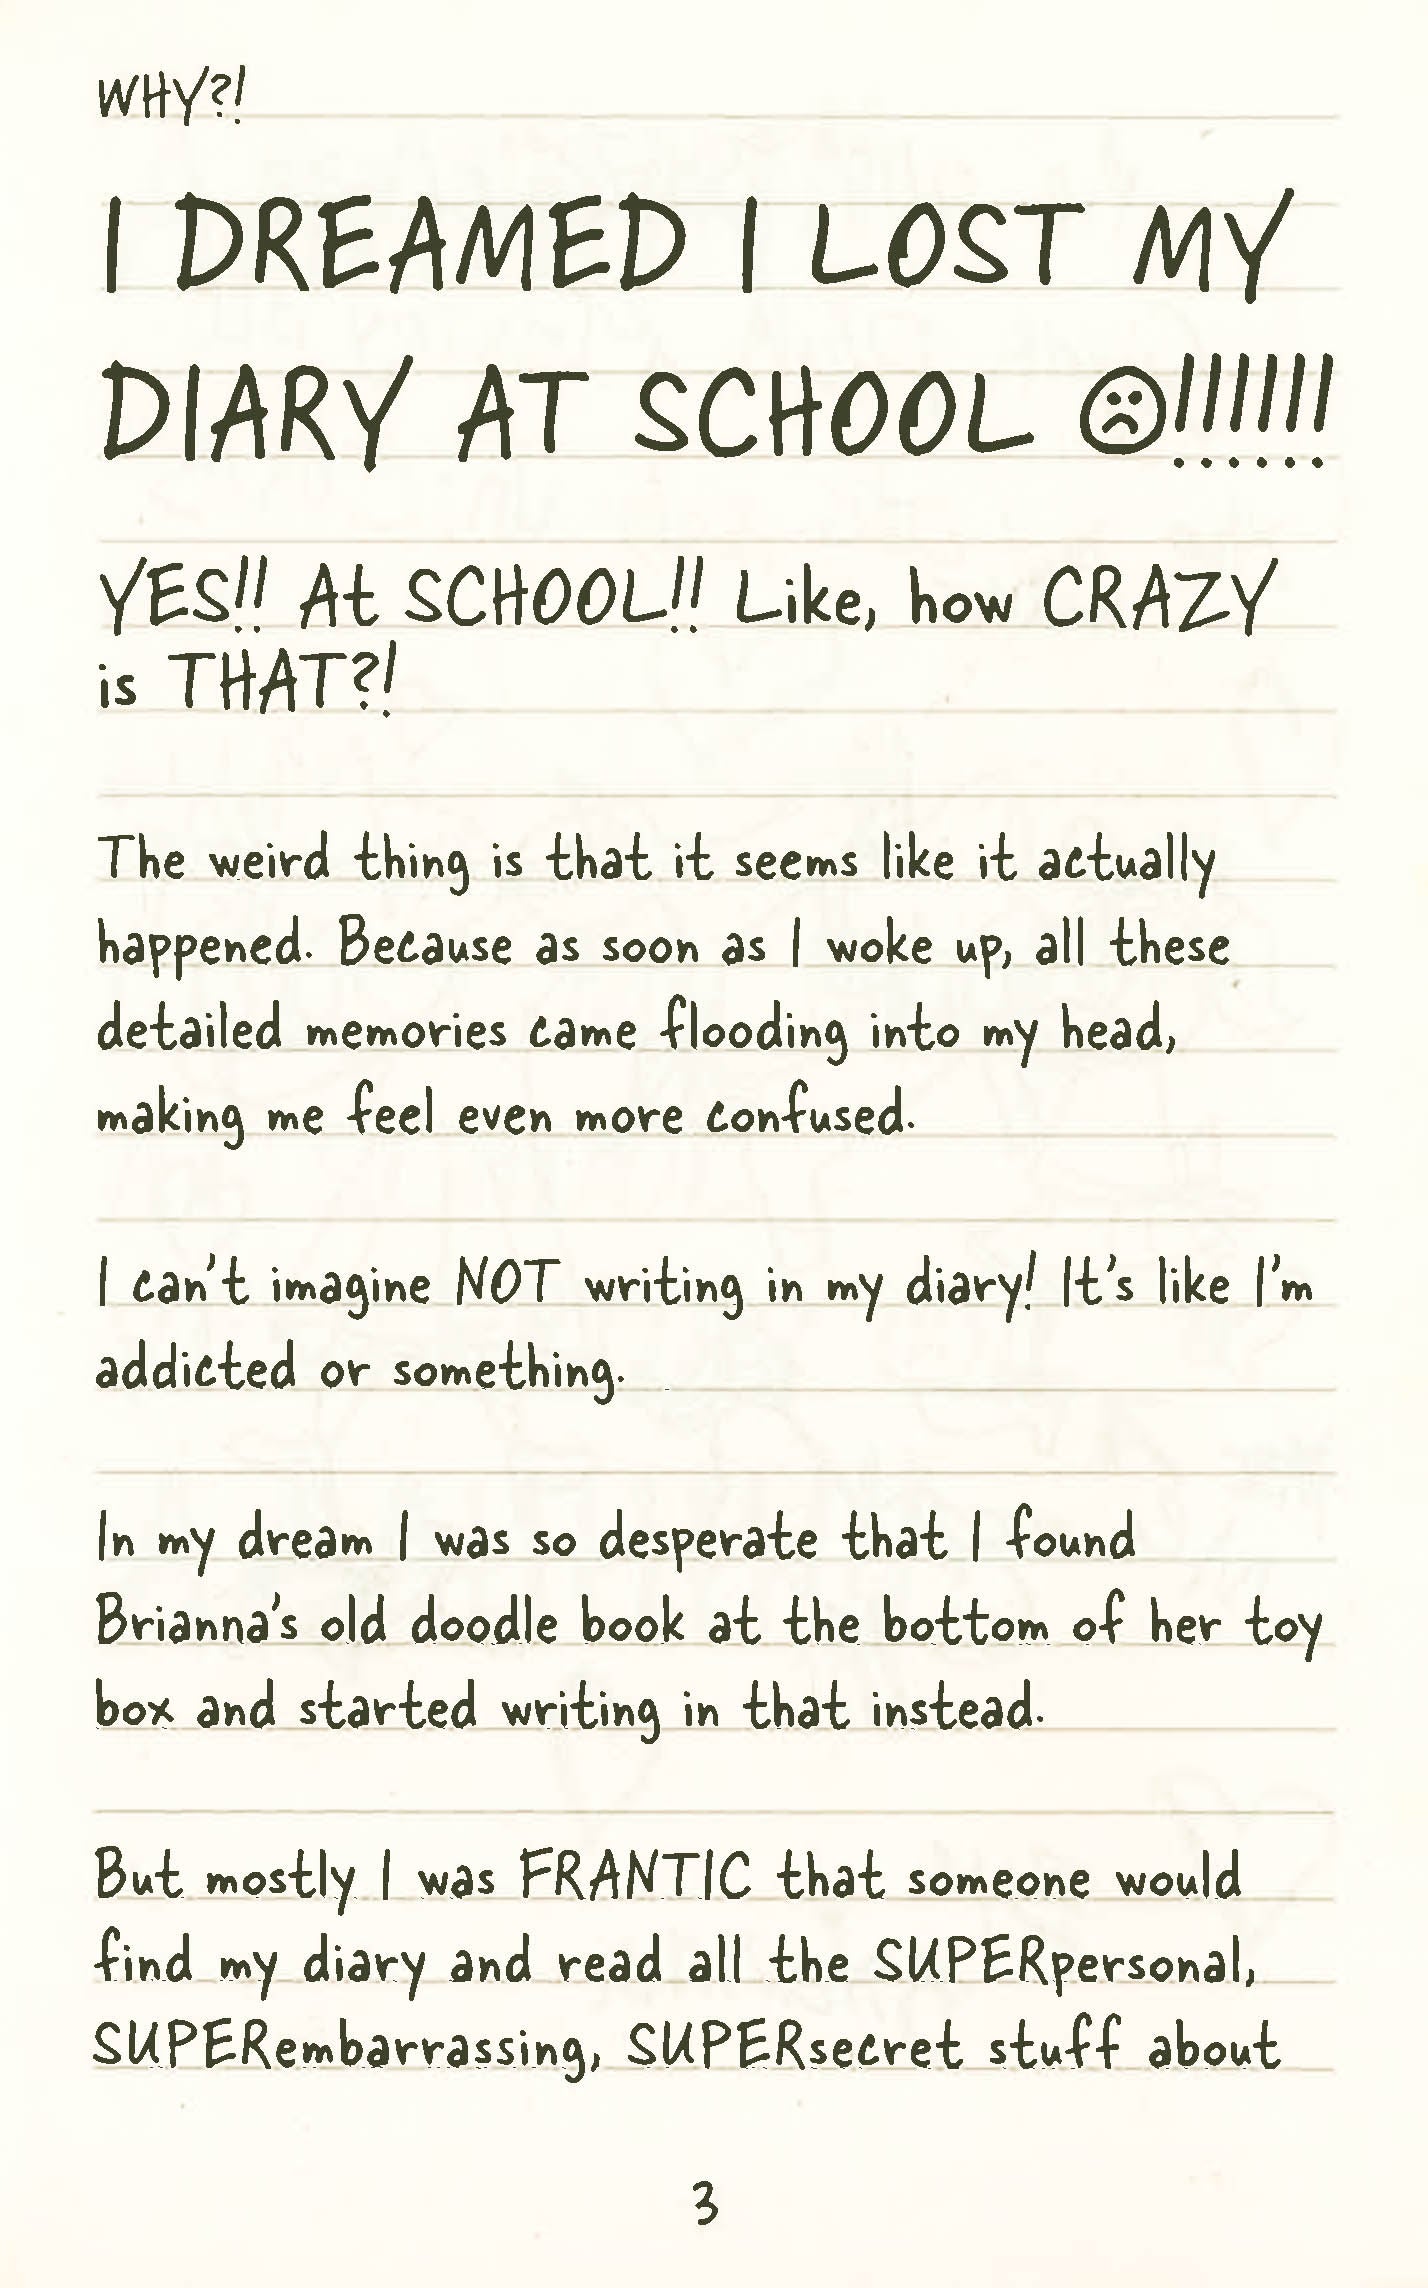 WHY?!
I DREAMED I LOST MY
DIARY AT SCHOOL ☹!!!!!!
YES!! At SCHOOL!! Like, how CRAZY
is THAT?!
The weird thing is that it seems like it actually
happened. Because as soon as I woke up, all these
detailed memories came flooding into my head,
making me feel even more confused.
I can't imagine NOT writing in my diary! It's like I'm
addicted or something.
In my dream I was so desperate that I found
Brianna's old doodle book at the bottom of her toy
box and started writing in that instead.
But mostly I was FRANTIC that someone would
find my diary and read all the SUPERpersonal,
SUPERembarrassing, SUPERsecret stuff about
3